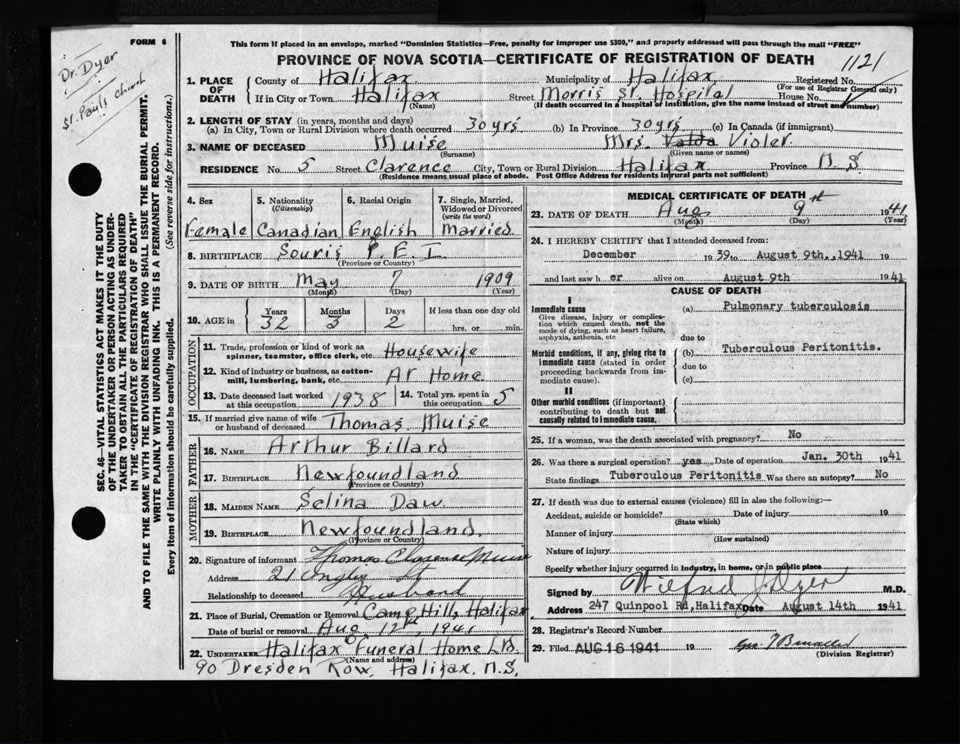 FORM 6
This form if placed in an envelope, marked "Dominion Statistics—Free, penalty for improper use $300," and properly addressed will pass through the mail "FREE"
PROVINCE OF NOVA SCOTIA—CERTIFICATE OF REGISTRATION OF DEATH 1121
Dr. Dyer
St. Pauls Church
SEC. 46—VITAL STATISTICS ACT MAKES IT THE DUTY
OF THE UNDERTAKER OR PERSON ACTING AS UNDER-
TAKER TO OBTAIN ALL THE PARTICULARS REQUIRED
IN THE "CERTIFICATE OF REGISTRATION OF DEATH"
AND TO FILE THE SAME WITH THE DIVISION REGISTRAR WHO SHALL ISSUE THE BURIAL PERMIT.
WRITE PLAINLY WITH UNFADING INK. THIS IS A PERMANENT RECORD.
Every item of information should be carefully supplied. (See reverse side for instructions.)
1. PLACE OF DEATH County of Halifax Municipality of Halifax Registered No.
(For use of Registrar General only)
If in City or Town Halifax Street Morris St. Hospital House No.
(Name) (If death occurred in a hospital or institution, give the name instead of street and number)
2. LENGTH OF STAY (in years, months and days)
(a) In City, Town or Rural Division where death occurred 30 yrs (b) In Province 30 yrs (c) In Canada (if immigrant)
3. NAME OF DECEASED Muise Mrs. Valda Violet
(Surname) (Given name or names)
RESIDENCE No. 5 Street Clarence City, Town or Rural Division Halifax Province N.S.
(Residence means usual place of abode. Post Office Address for residents in rural parts not sufficient)
4. Sex 5. Nationality (Citizenship) 6. Racial Origin 7. Single, Married, Widowed or Divorced (write the word)
Female Canadian English Married
8. BIRTHPLACE Souris P.E.I
(Province or Country)
9. DATE OF BIRTH May 7 1909
(Month) (Day) (Year)
10. AGE in Years Months Days If less than one day old
32 3 2 hrs. or min.
OCCUPATION
11. Trade, profession or kind of work as
spinner, teamster, office clerk, etc. Housewife
12. Kind of industry or business, as cotton-
mill, lumbering, bank, etc. At Home
13. Date deceased last worked at this occupation 1938 14. Total yrs. spent in this occupation 5
15. If married give name of wife or husband of deceased Thomas Muise
FATHER
16. NAME Arthur Billard
17. BIRTHPLACE Newfoundland
(Province or Country)
MOTHER
18. MAIDEN NAME Selina Daw
19. BIRTHPLACE Newfoundland
(Province or Country)
20. Signature of informant Thomas Clarence Muise
Address 21 St
Relationship to deceased Husband
21. Place of Burial, Cremation or Removal Camp Hill, Halifax
Date of burial or removal Aug 12th, 1941
22. UNDERTAKER Halifax Funeral Home Ltd.
(Name and address)
90 Dresden Row, Halifax. N.S.
MEDICAL CERTIFICATE OF DEATH
23. DATE OF DEATH Aug 9th 1941
(Month) (Day) (Year)
24. I HEREBY CERTIFY that I attended deceased from:
December 1939 to August 9th., 1941
and last saw her alive on August 9th 1941
CAUSE OF DEATH
I
Immediate cause (a) Pulmonary tuberculosis
Give disease, injury or complica-
tion which caused death, not the
mode of dying, such as heart failure,
asphyxia, asthenia, etc due to
Morbid conditions, if any, giving rise to (b) Tuberculous Peritonitis.
immediate cause (stated in order due to
proceeding backwards from im- (c)
mediate cause).
II
Other morbid conditions (if important)
contributing to death but not
causally related to immediate cause.
25. If a woman, was the death associated with pregnancy? No
26. Was there a surgical operation? yes Date of operation Jan. 30th 1941
State findings Tuberculous Peritonitis Was there an autopsy? No
27. If death was due to external causes (violence) fill in also the following:—
Accident, suicide or homicide? Date of injury 19
(State which)
Manner of injury
(How sustained)
Nature of injury
Specify whether injury occurred in industry, in home, or in public place
Signed by Wilfred J Dyer M.D.
Address 247 Quinpool Rd, Halifax Date August 14th 1941
28. Registrar's Record Number
29. Filed AUG 16 1941 19
(Division Registrar)